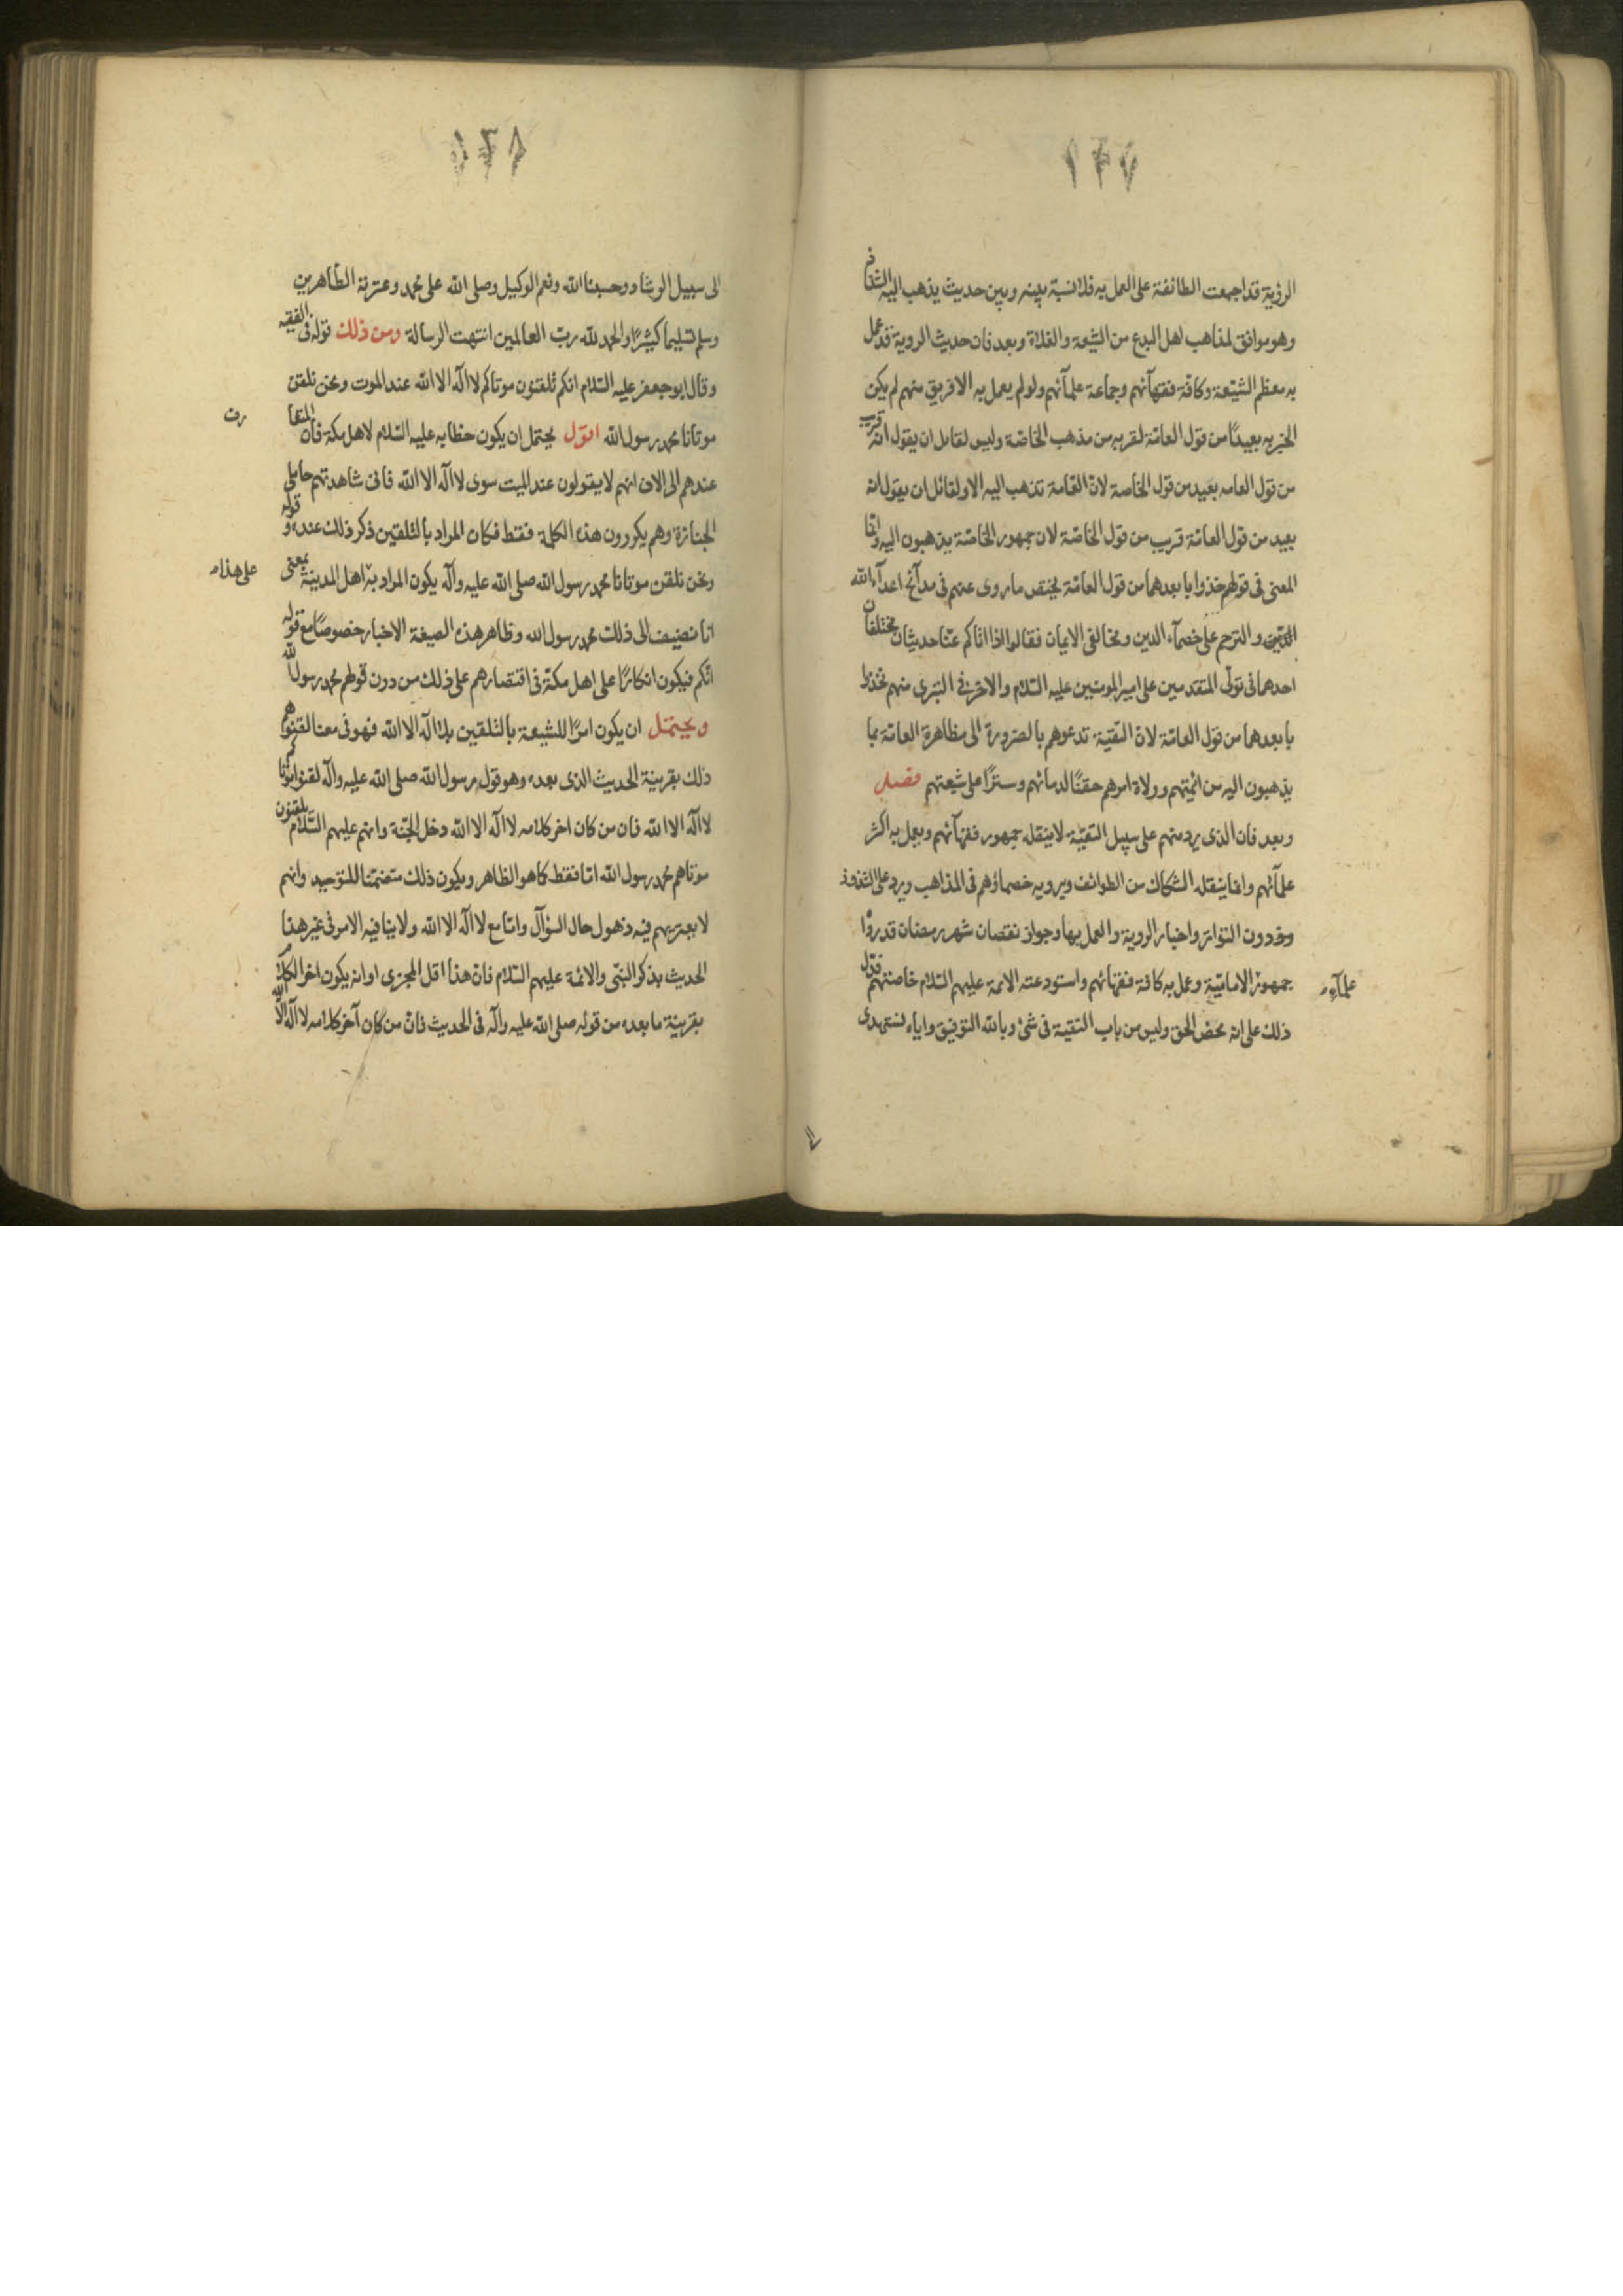 ١٢٧
الرؤية قد اجمعت الطائفة على العمل به فلا نسبة بينه وبين حديث يذهب اليه الشذاذ
وهو موافق لمذاهب اهل البدع من الشيعة والغلاة وبعد فان حديث الروية قد عمل
به معظم الشيعة وكافة فقهآئهم وجماعة علمآئهم ولو لم يعمل به الا فريق منهم لم يكن
الخبر به بعيدًا من قول العامّة لقربه من مذهب الخاصّة وليس لقايل ان يقول انه قريب
من قول العامه بعيد من قول الخاصة لانّ العامة تذهب اليه الا ولقائل ان يقول انه
بعيد من قول العامّة قريب من قول الخاصّة لان جمهور الخاصّة يذهبون اليه وانما
المعنى فى قولهم خذوا بابعدهما من قول العامّة يختص ما روى عنهم فى مدآئح اعدآء الله
والترحم على خصمآء الدين ومخالفى الايمان فقالوا اذا اتاكم عنّا حديثان مختلفان
احدهما فى تولّى المتقدمين على امير المومنين عليه السّلام والاخر فى التبرى منهم فخذوا
بابعدهما من قول العامّة لانّ التّقيّة تدعوهم بالضرورة الى مظاهرة العامّة بما
يذهبون اليه من ائمتهم وولاة امرهم حقنًا لدمائهم وسترًا على شيعتهم فصل
وبعد فان الذى يرد منهم على سبيل التقيّة لا ينقله جمهور فقهآئهم ويعمل به اكثر
علمآئهم وانما ينقله الشكاك من الطوائف ويرويه خصماؤهم فى المذاهب ويرد على الشذوذ
دون التواتر واخبار الروية والعمل بها وجواز نقصان شهر رمضان قد رواه
جمهور علمآء الاماميّة وعمل به كافة فقهائهم واستودعته الايمة عليهم السّلام خاصتهم فدل
ذلك على انه محض الحق وليس من باب التقية فى شئ وبالله التوفيق واياه نستهدى
١٢٨
الى سبيل الرشاد وحسبنا الله ونعم الوكيل وصلى الله على محمد وعترته الطّاهرين
وسلم تسليما كثيرًا والحمد لله ربّ العالمين انتهت الرسالة ومن ذلك قوله فى الفقيه
وقال ابو جعفر عليه السّلام انكم تُلقنون موتاكم لا اله الا الله عند الموت ونحن نلقن
موتانا محمد رسول الله اقول يحتمل ان يكون خطابه عليه السّلام لاهل مكة فان المتعارف
عندهم الى الان انهم لا يقولون عند الميت سوى لا اله الا الله فانى شاهدتهم حاملى
الجنازة وهم يكررون هذه الكلمة فقط فكان المراد بالتلقين ذكر ذلك عنده وقوله
ونحن نلقن موتانا محمد رسول الله صلى الله عليه وآله يكون المراد به على هذا اهل المدينة بمعنى
انا نضيف الى ذلك محمد رسول الله وظاهر هذه الصيغة الاخبار خصوصًا مع قوله
انكم فيكون انكارًا على اهل مكة فى اقتصارهم على ذلك من دون قولهم محمد رسول الله
ويحتمل ان يكون امرًا للشيعة بالتلقين بلا اله الا الله فهو فى معنا لقنوهم
ذلك بقرينة الحديث الذى بعده وهو قول رسول الله صلى الله عليه واله لقنوا موتاكم
لا اله الا الله فان من كان اخر كلامه لا اله الا الله دخل الجنّة وانهم عليهم السّلام يلقنون
موتاهم محمد رسول الله امّا فقط كما هو الظاهر ويكون ذلك متضمّنا للتوحيد وانهم
لا يعتريهم فيه ذهول حال السؤال وامّا مع لا اله الا الله ولا ينافيه الامر فى غير هذا
الحديث بذكر النبّى والائمة عليهم السّلام فانّ هذا اقل المجزى او انه يكون اخر الكلام
بقرينة ما بعده من قوله صلى الله عليه وآله فى الحديث فانّ من كان آخر كلامه لا اله الّا الله